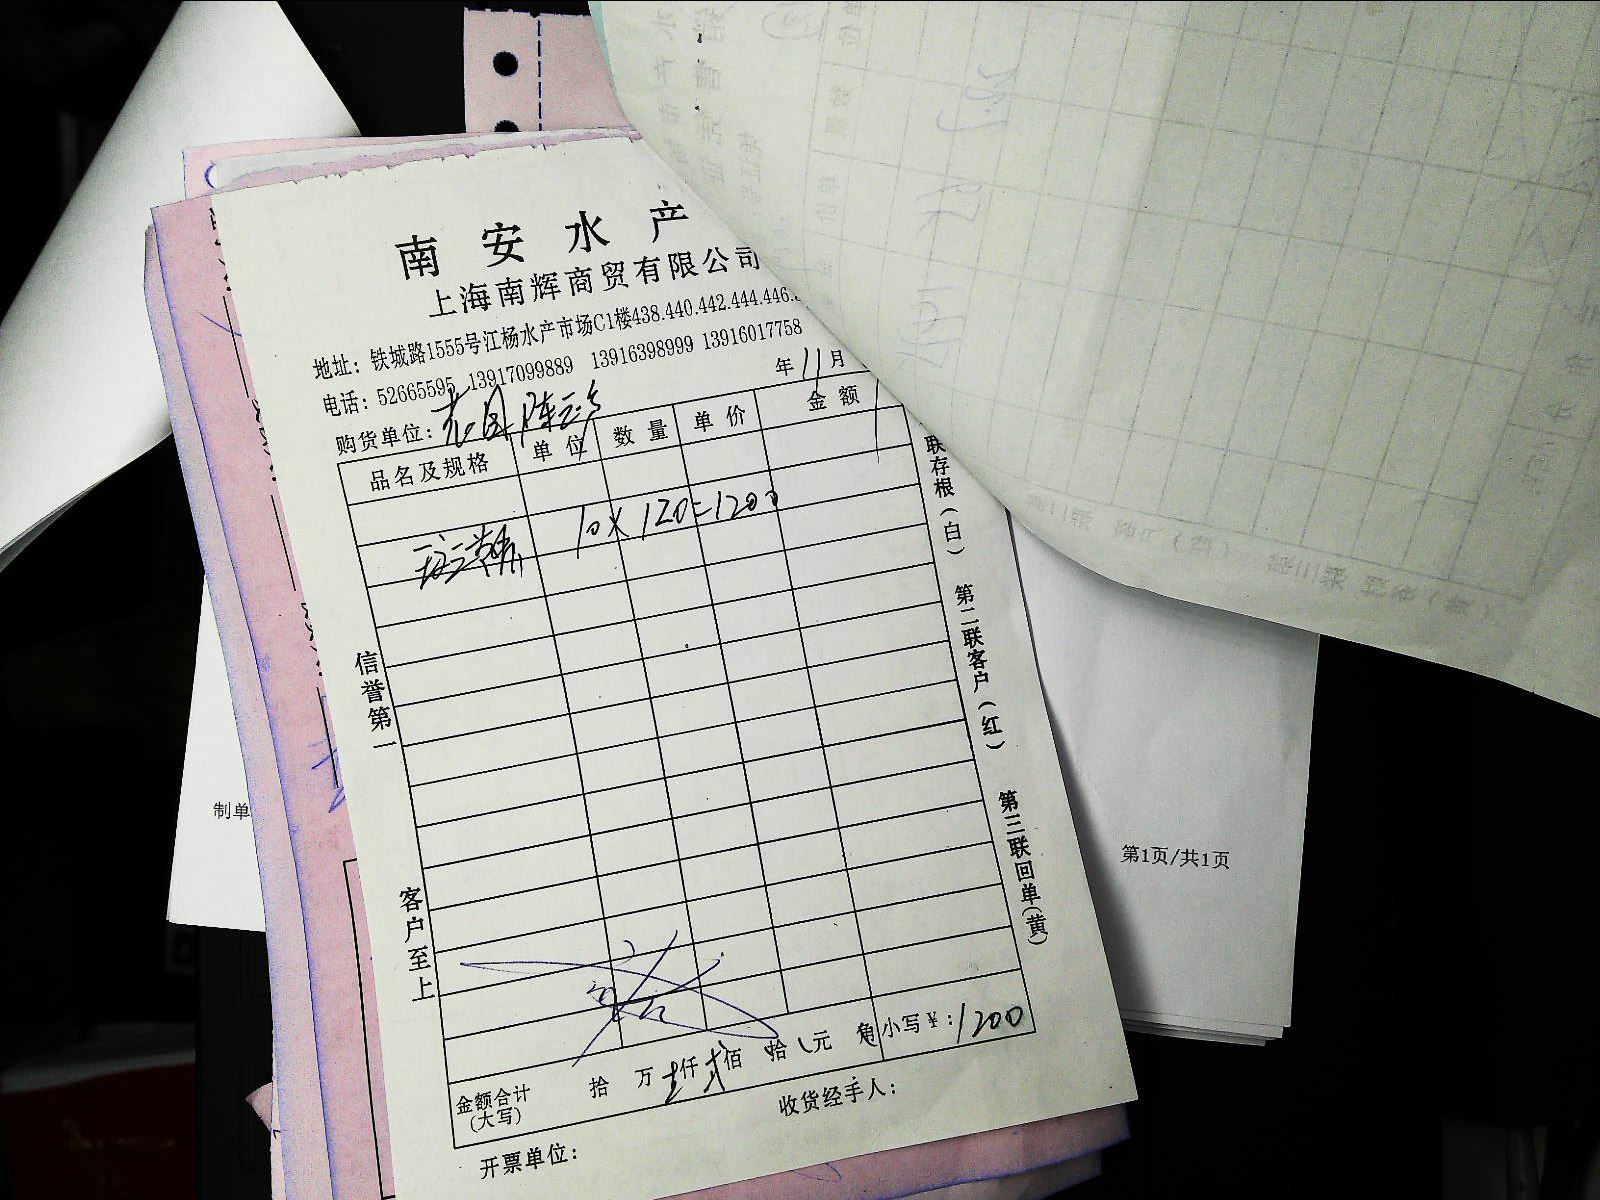 南安水产
上海南辉商贸有限公司
地址：铁城路1555号江杨水产市场C1楼438.440.442.444.446.
电话：52665595 13917099889 13916398999 13916017758
年11月
购货单位：
品名及规格 单位 数量 单价 金额
10×120=1200
信誉第一
客户至上
联存根（白）
第二联客户（红）
第三联回单（黄）
金额合计（大写） 拾 万 壹仟 贰佰 拾 元 角 小写￥：1200
收货经手人：
开票单位：
制单
第1页/共1页